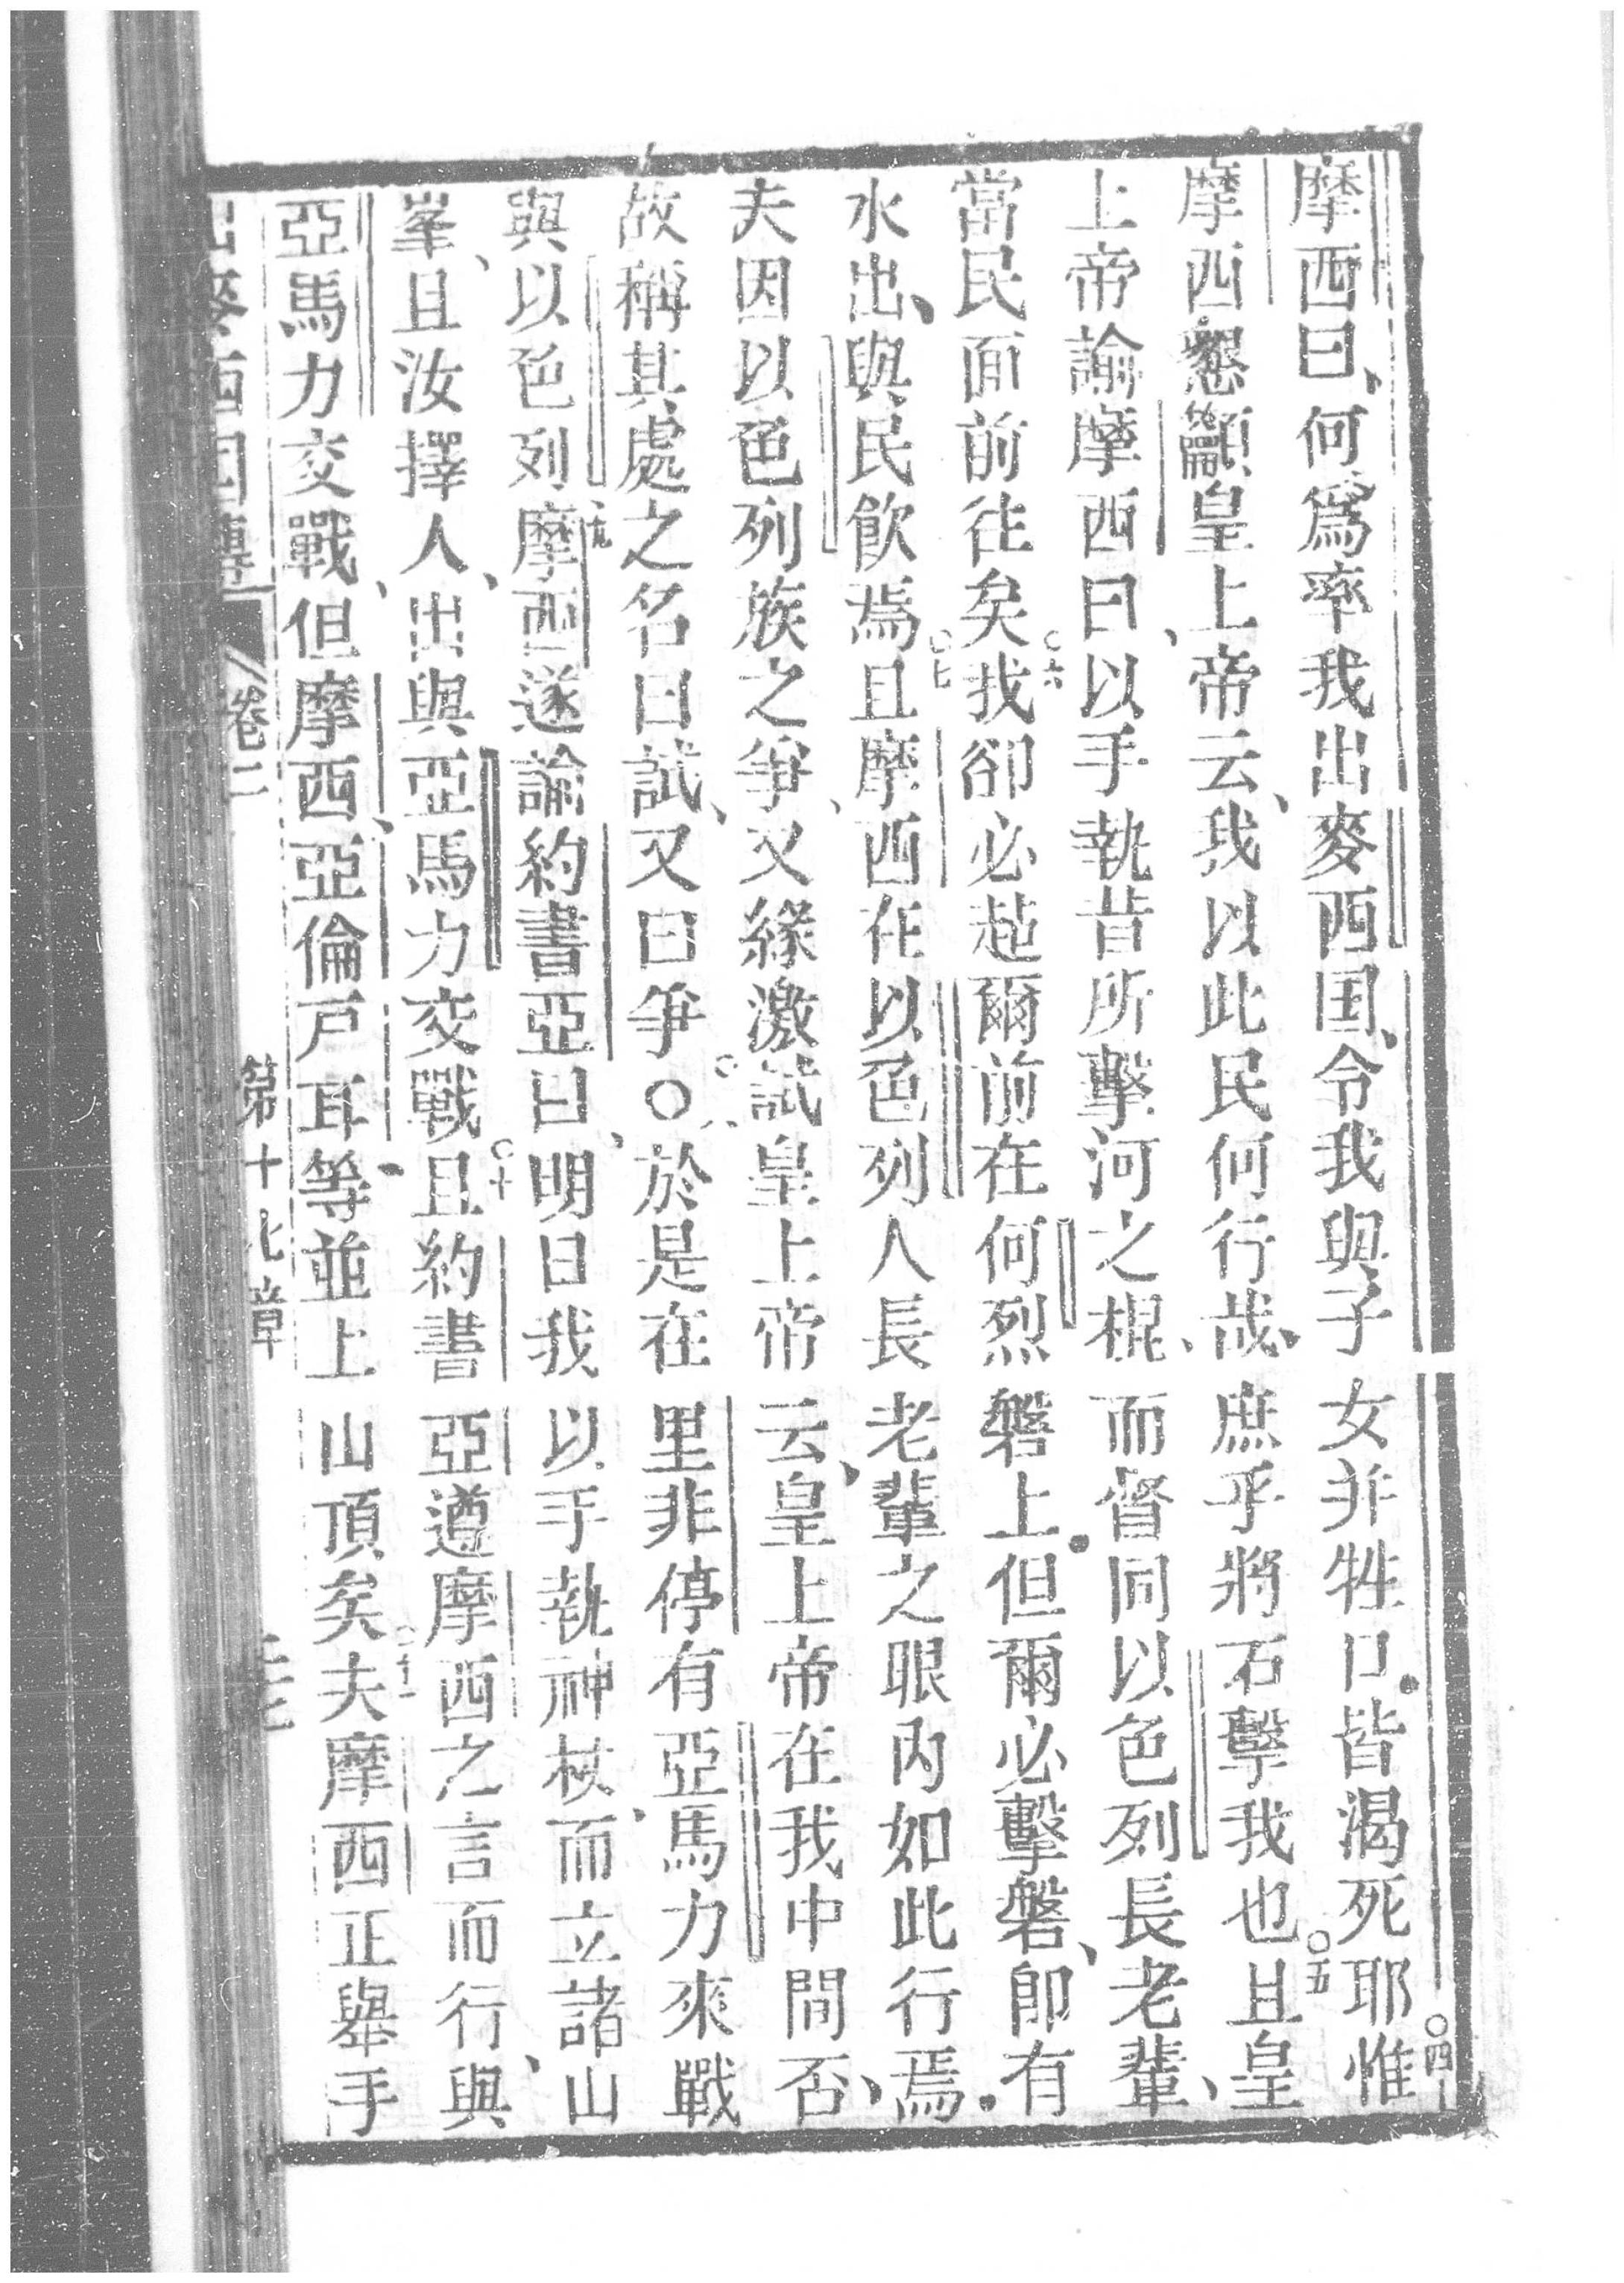 摩西曰、何為率我出麥西国、令我與子女并牲口皆渴死耶○四惟
摩西懇籲皇上帝云、我以此民何行哉、庶乎將石擊我也○五且皇
上帝諭摩西曰、以手執昔所擊河之棍、而督同以色列長老輩、
當民面前往矣○六我卻必起爾前在何烈磐上但爾必擊磐、即有
水出、與民飲焉○七且摩西在以色列人長老輩之眼內如此行焉
夫因以色列族之爭、又緣激試皇上帝云、皇上帝在我中間否、
故稱其處之名曰試、又曰爭○○八於是在里非停有亞馬力來戰
與以色列○九摩西遂諭約書亞曰、明日我以手執神杖、而立諸山
峯、且汝擇人、出與亞馬力交戰○十且約書亞遵摩西之言而行、與
亞馬力交戰、但摩西、亞倫戶耳等、並上山頂矣○十一夫摩西正舉手
出麥西囯傳 卷二 第十七章